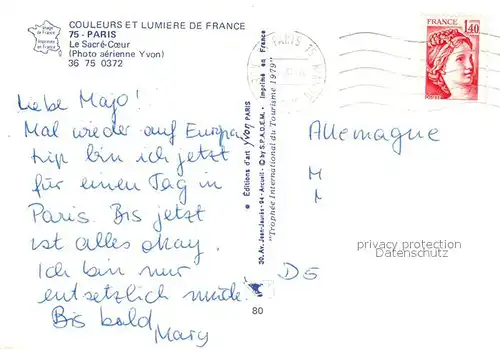 COULEURS ET LUMIERE DE FRANCE
75 - PARIS
Le Sacré-Cœur
(Photo aérienne Yvon)
36 75 0372
Image de France
Imprimée en France
Liebe Majo!
Mal wieder auf Europa
trip bin ich jetzt
für einen Tag in
Paris. Bis jetzt
ist alles okay.
Ich bin nur
entsetzlich müde.
Bis bald,
Mary
© Editions d'art yvon PARIS
30, Av. Jean-Jaurès - 94 - Arcueil - © by S.P.A.D.E.M. - Imprimé en France
"Trophée International du Tourisme 1979"
80
PARIS
FRANCE
1,40
POSTES
Allemagne
M
M
D5
privacy protection
Datenschutz